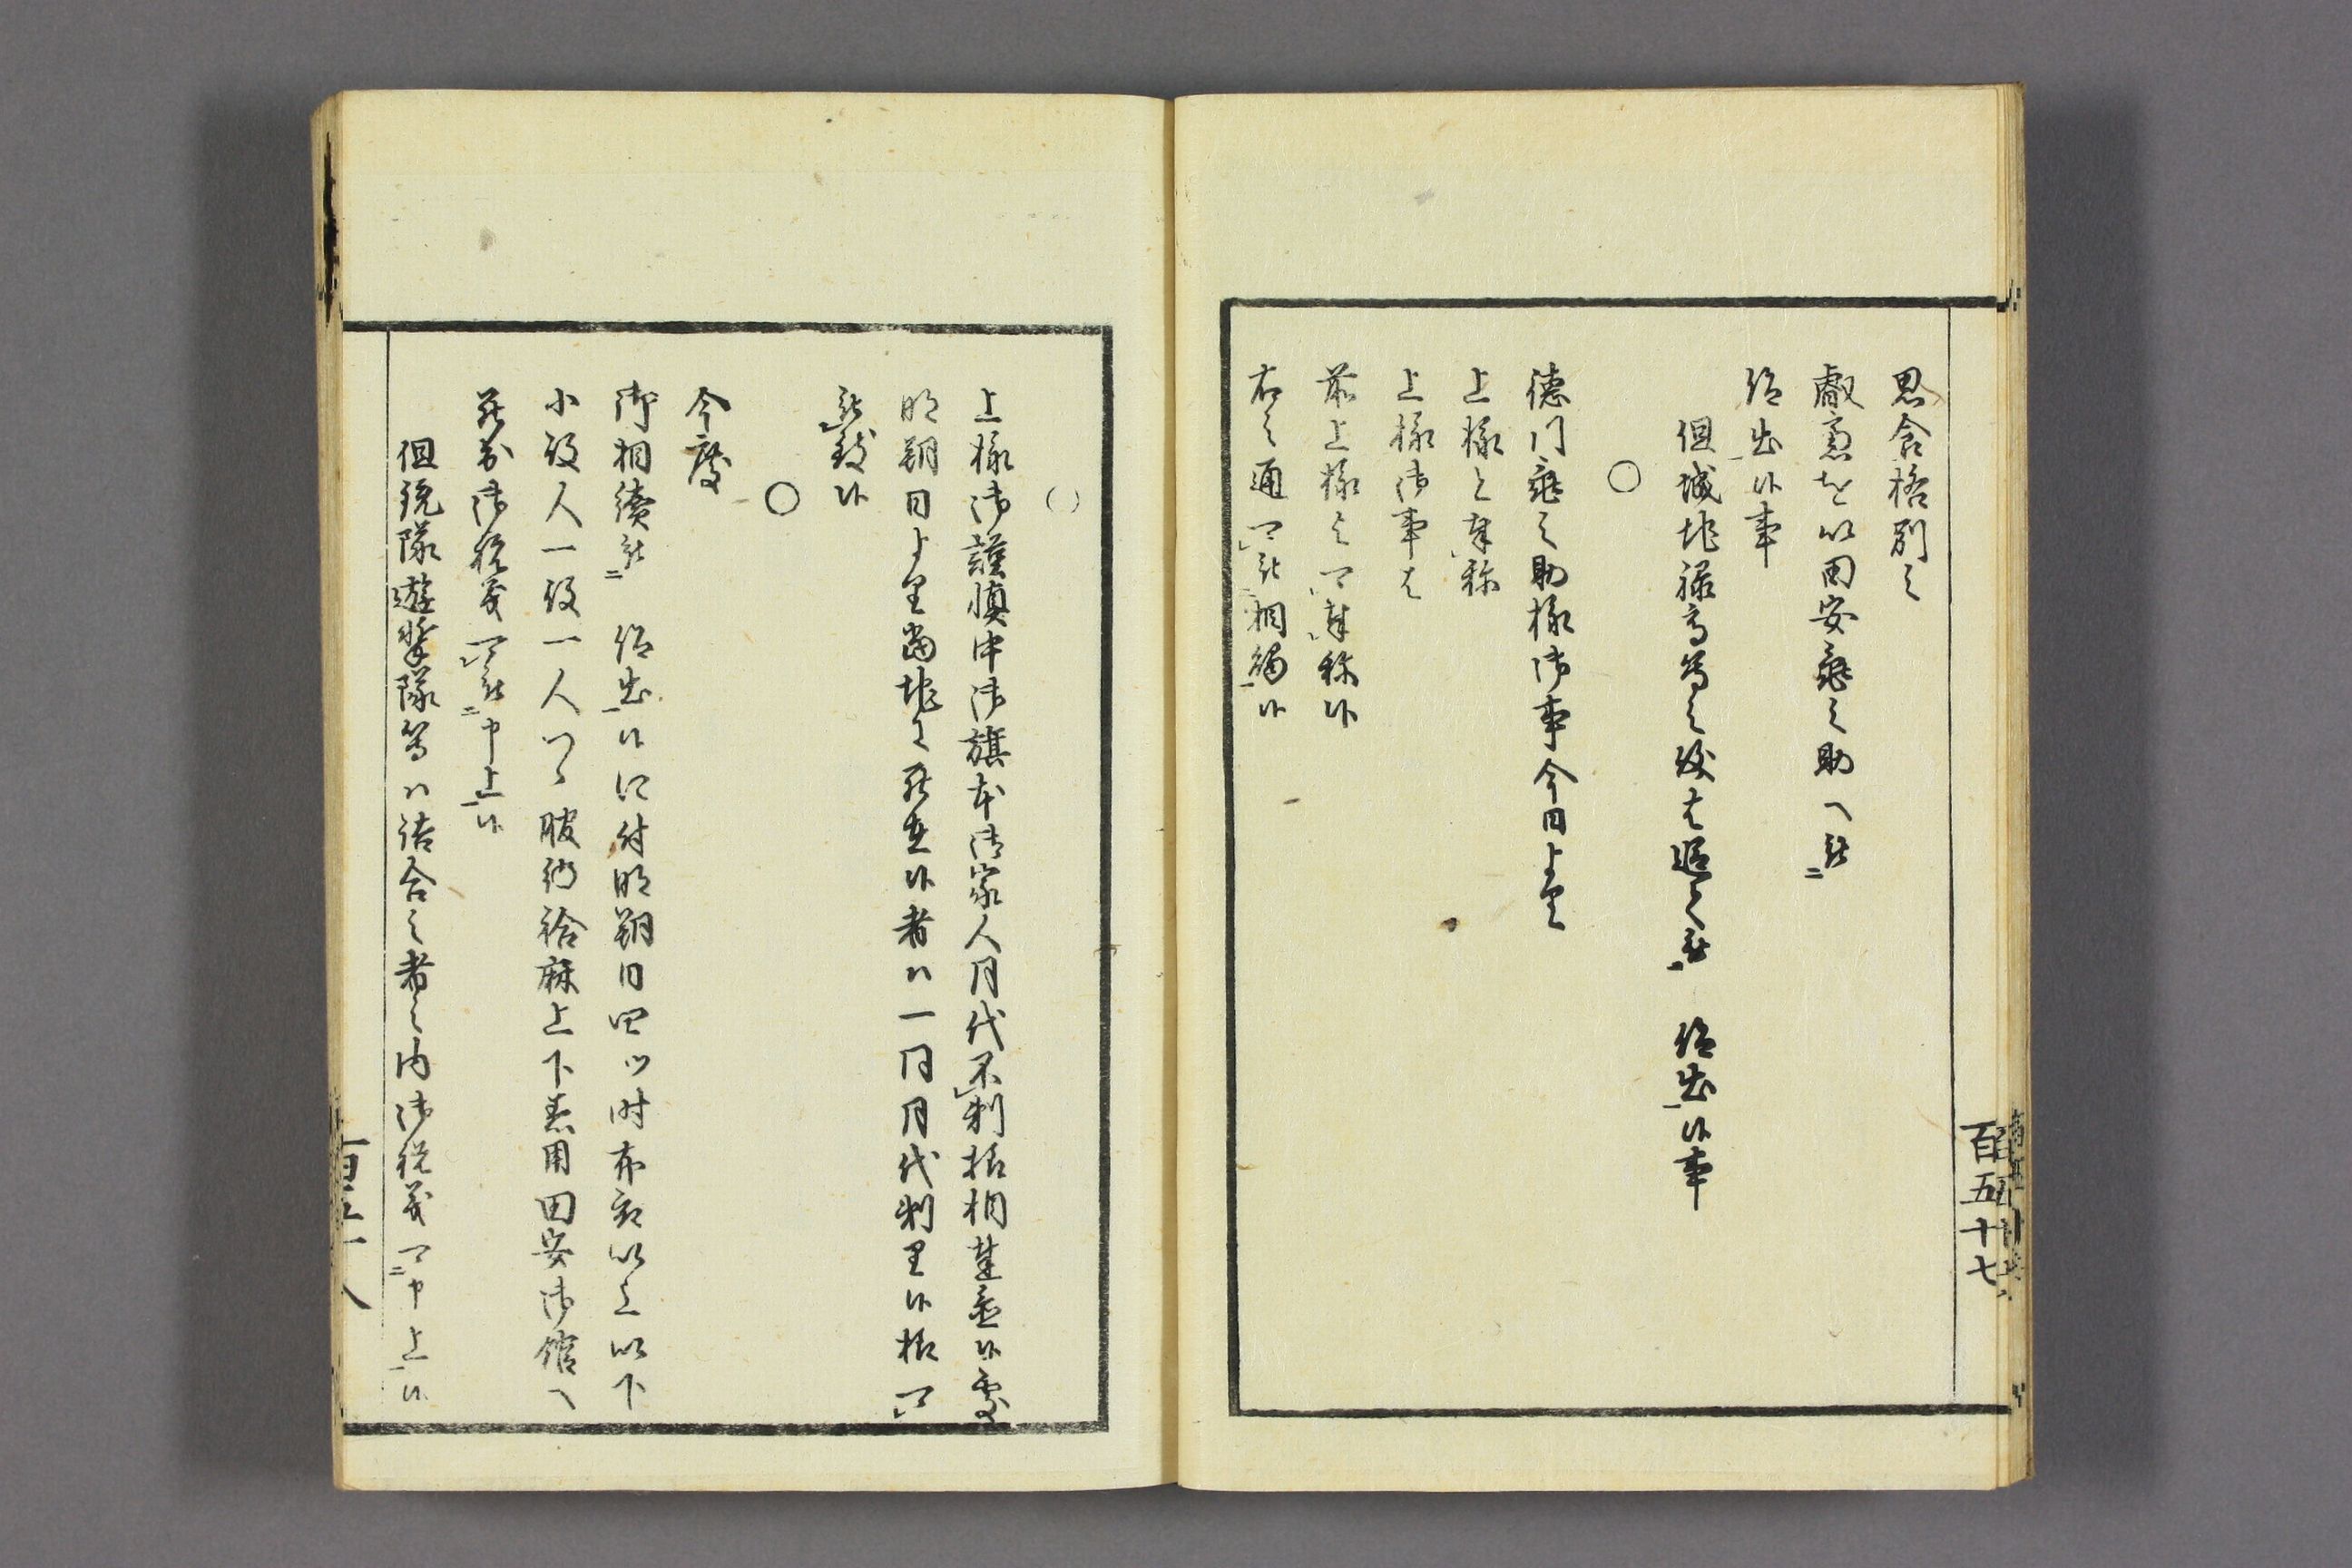 思食格別之
叡慮を以田安亀之助へ被二
仰出一候事
但城地禄高等之儀は追而被二 仰出一候事
○
徳川亀之助様御事今日より
上様と奉レ称
上様御事は
前上様と可レ奉レ称候
右之通可レ被二相触一候
百五十七
○
上様御謹慎中御旗本御家人月代不レ剃様相達置候処
明朔日より当地に罷在候者ハ一同月代剃り候様可レ
被レ致候
○
今度
御相続被二 仰出一候に付明朔日四ツ時布衣以上以下
小役人一役一人ツヽ服紗袷麻上下着用田安御館へ
罷出御祝儀可レ被二申上一候
但銃隊遊撃隊等ハ詰合之者之内御祝儀可二申上一候
百五十八